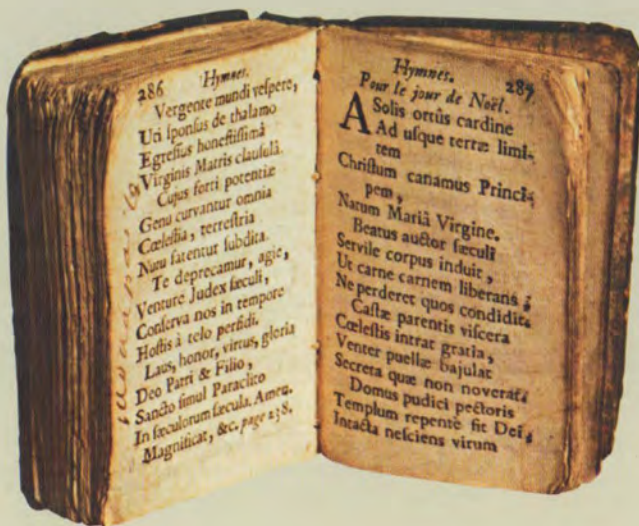 286 Hymnes.
Vergente mundi veſpere,
Uti ſponſus de thalamo
Egreſſus honeſtiſſimâ
Virginis Matris clauſulâ.
Cujus forti potentiæ
Genu curvantur omnia
Cœleſtia, terreſtria
Nutu fatentur ſubdita.
Te deprecamur, agie,
Venture Judex ſæculi,
Conſerva nos in tempore
Hoſtis à telo perfidi.
Laus, honor, virtus, gloria
Deo Patri & Filio,
Sancto ſimul Paraclito
In ſæculorum ſæcula. Amen.
Magnificat, &c. page 238.
Hymnes. 287
Pour le jour de Noël.
A Solis ortûs cardine
Ad uſque terræ limi-
tem
Chriſtum canamus Princi-
pem,
Natum Mariâ Virgine.
Beatus auctor ſæculi
Servile corpus induit,
Ut carne carnem liberans,
Ne perderet quos condidit.
Caſtæ parentis viſcera
Cœleſtis intrat gratia,
Venter puellæ bajulat
Secreta quæ non noverat.
Domus pudici pectoris
Templum repentè fit Dei,
Intacta neſciens virum